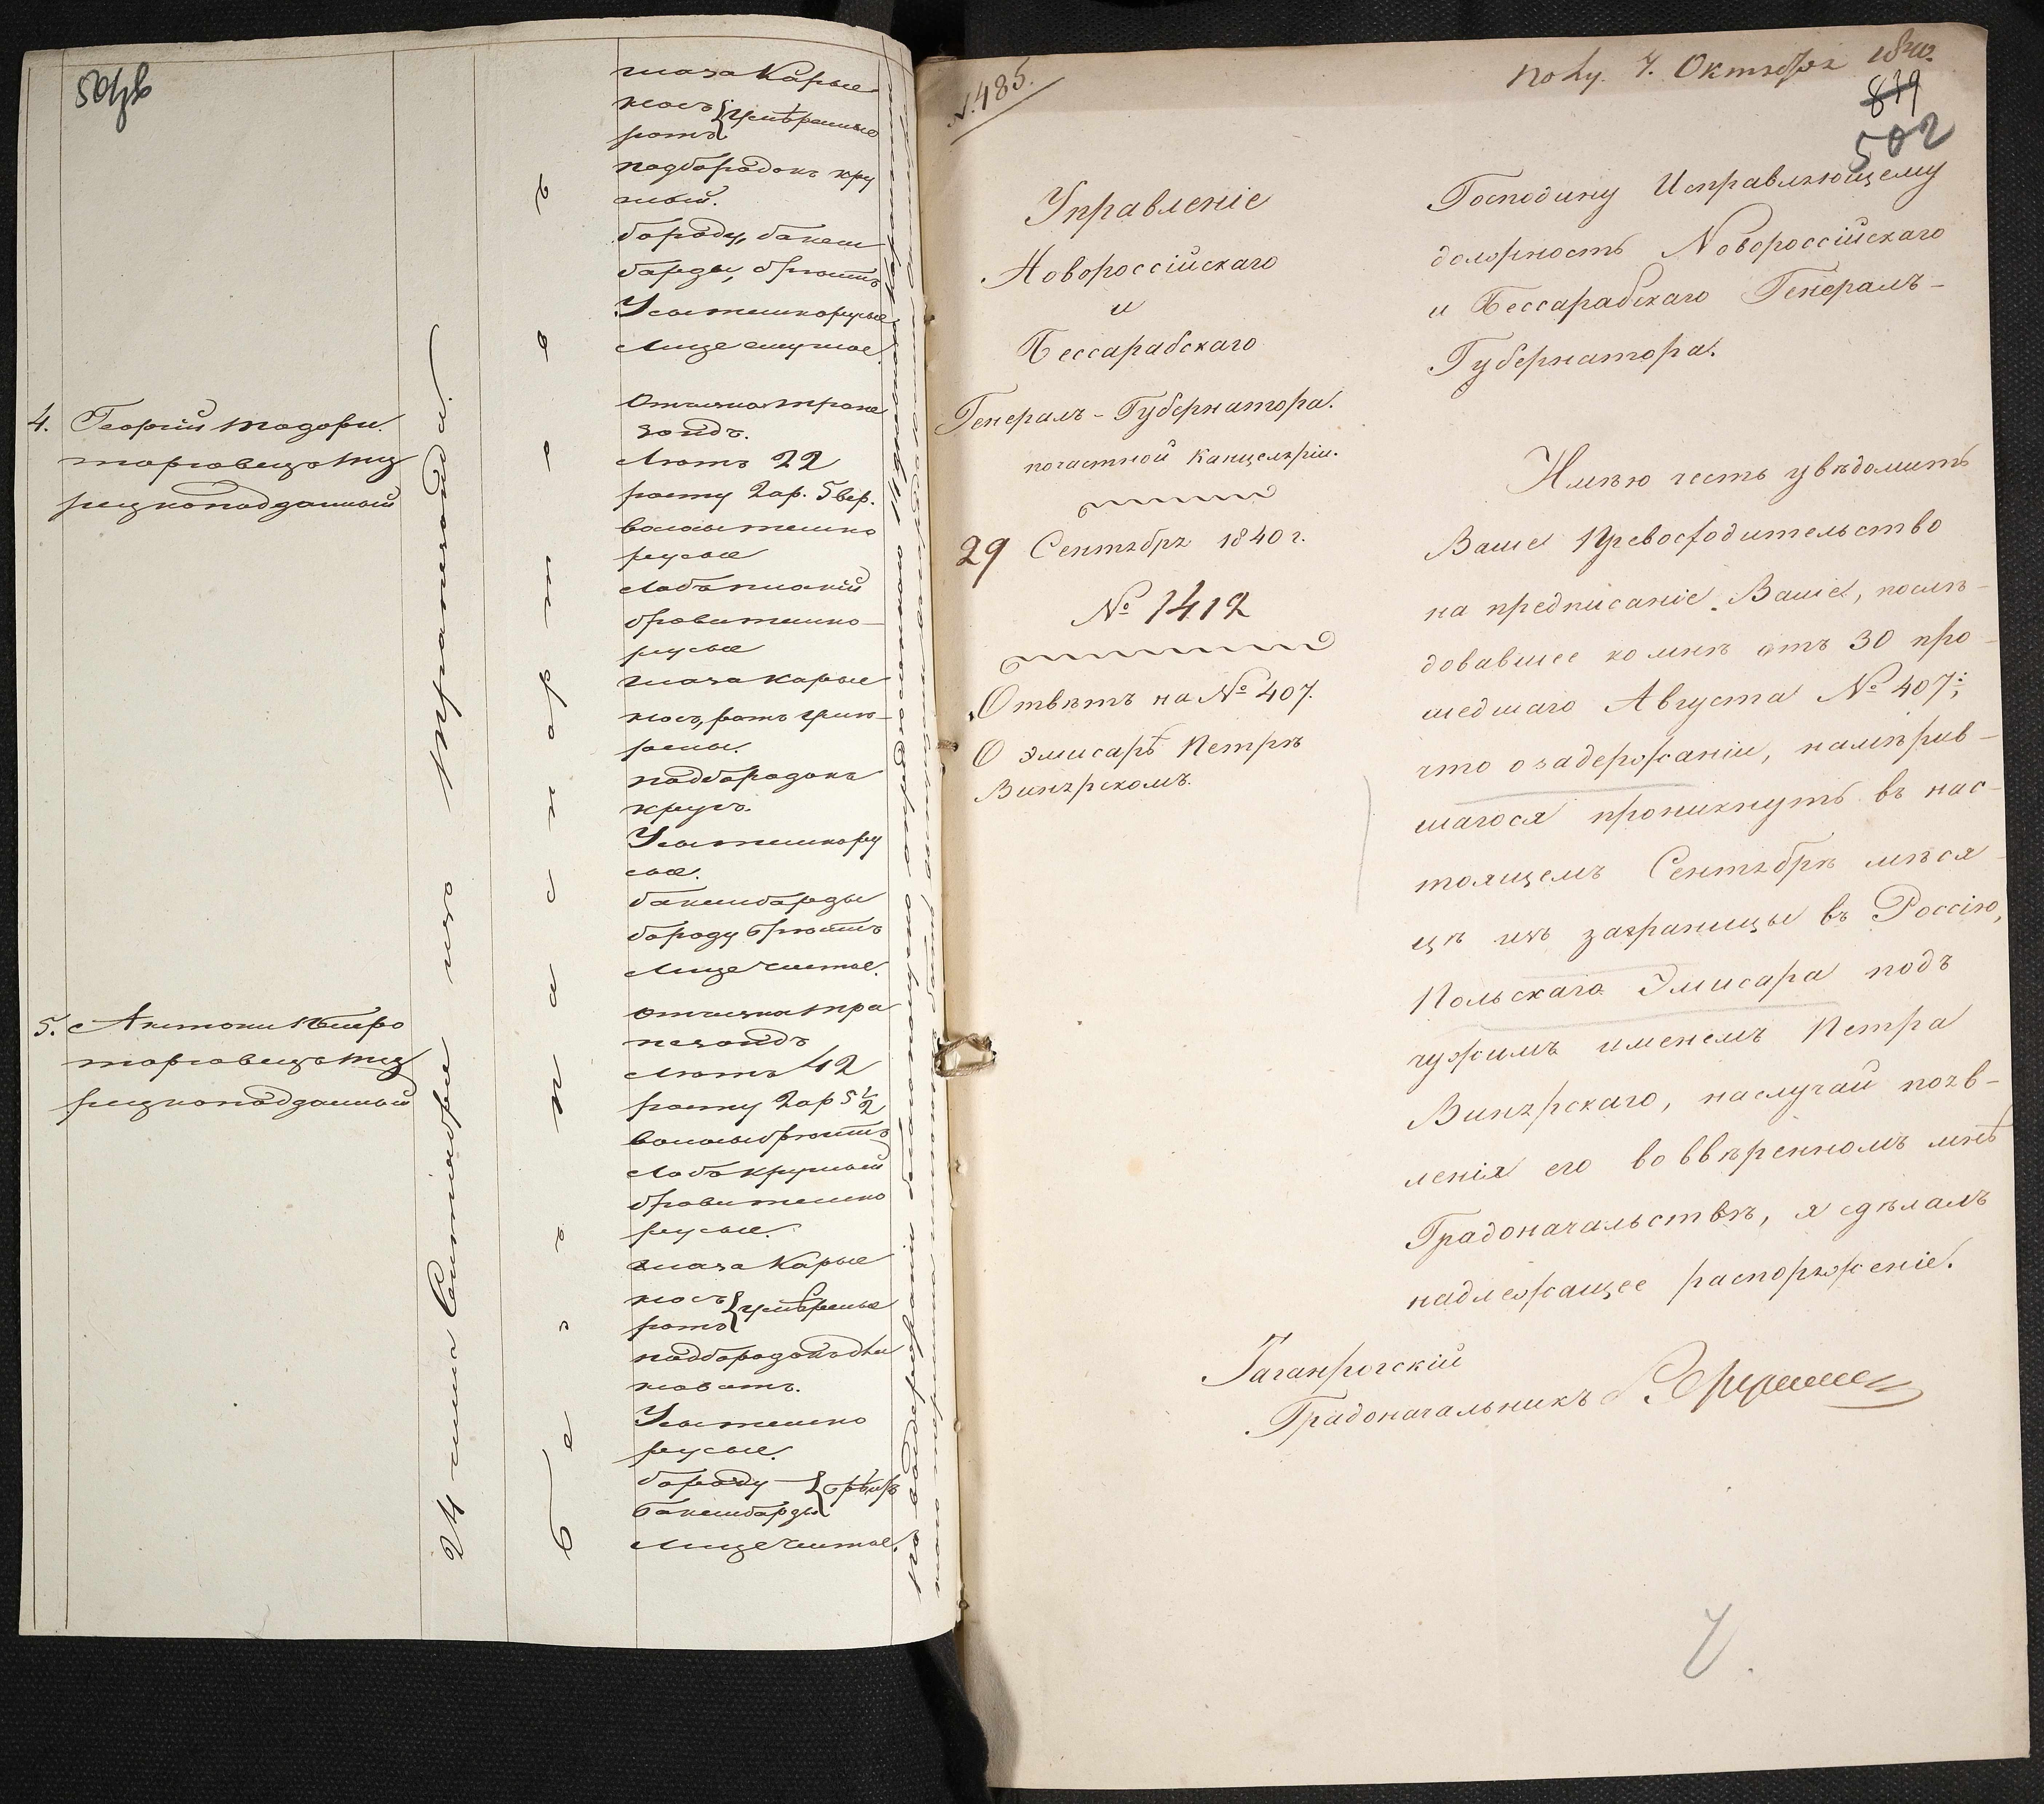 4. Георгій Тодори.
торговецъ Ту
рецкоподданный
5. Антони Пьеро
торговецъ Ту
рецкоподданный
24 числа Сентября изъ Трапезонда.
безъ паспортовъ
глаза Карые
носъ
ротъ } умѣренные
подбородокъ кру
глый.
бороду, бакен
барды, брѣетъ
Усы темнорусые
Лице смуглое.
Отъ
Лѣтъ 22
росту 2 ар. 5 вер.
волосы темно
русые
Лобъ низкій
брови темно-
русые
глаза карые
носъ, ротъ умѣ-
рены.
подбородокъ
кругъ.
Усы темнору
сые.
бакенбарды
бороду брѣетъ
Лице чистое.
Лѣтъ 42
росту 2 ар 5 1/2
волосы
Лобъ круглый
брови темно
русые.
глаза Карые
носъ
ротъ } умѣрены
подбородокъ
Усы темно
русые.
бороду
бакенбарды } брѣетъ
Лице чистое.
№ 485.
Полу. 7. Октября 1840.
839
502
Управленіе
Новороссійскаго
и
Бессарабскаго
Генералъ-Губернатора.
по частной Канцеляріи.
29 Сентября 1840 г.
№ 1412
Отвѣтъ на № 407.
О эмисарѣ Петрѣ
Винярскомъ.
Господину Исправляющему
должность Новороссійскаго
и Бессарабскаго Генералъ-
Губернатора.
Имѣю честь увѣдомить
Ваше Превосходительство
на предписаніе Ваше, послѣ-
довавшее ко мнѣ отъ 30 про-
шедшаго Августа № 407:
что о задержаніи, намѣрив-
шагося проникнуть въ нас-
тоящемъ Сентябрѣ мѣся-
цѣ изъ заграницы въ Россію,
Польскаго Эмисара подъ
чужимъ именемъ Петра
Винярскаго, на случай появ-
ленія его во ввѣренномъ мнѣ
Градоначальствѣ, я сдѣлалъ
надлежащее распоряженіе.
Таганрогскій
Градоначальникъ